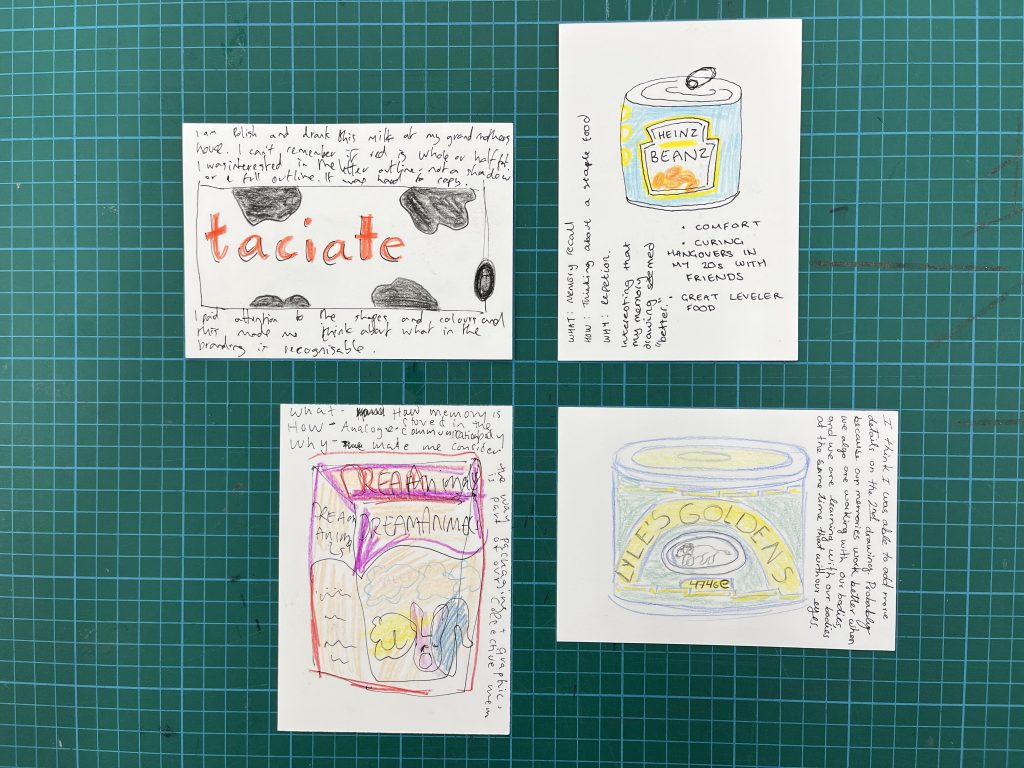 I am Polish and drank this milk at my grandmothers
house. I can't remember if red is whole or half ft.
I was interested in the letter outline - not a shadow
or a full outline. It was hard to copy.
taciate
I paid attention to the shapes and colours and
this made me think about what in the
branding is recognisable.
HEINZ
BEANZ
• COMFORT
• CURING
HANGOVERS IN
MY 20s WITH
FRIENDS
• GREAT LEVELER
FOOD
WHAT: Memory recall
HOW: Thinking about a staple food
WHY: Repetition.
Interesting that
my memory
drawing seemed
"better."
What - How memory is
stored in the
How - Analogue - communication body
Why - make me consider
the way packaging + graphics
is part of our collective mem
DREAMANIMALS
DREAMANIMA
DREAM
ANIMA
LS
I think I was able to add more
details on the 2nd drawing. Probably
because our memories work better when
we algo are working with our bodies,
and we are learning with our bodies
at the same time that with our eyes.
LYLE'S GOLDEN S
474Ge